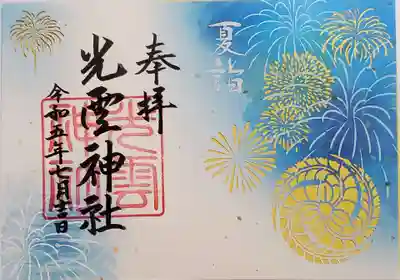 夏詣
奉拝
光雲神社
令和五年七月日
光雲